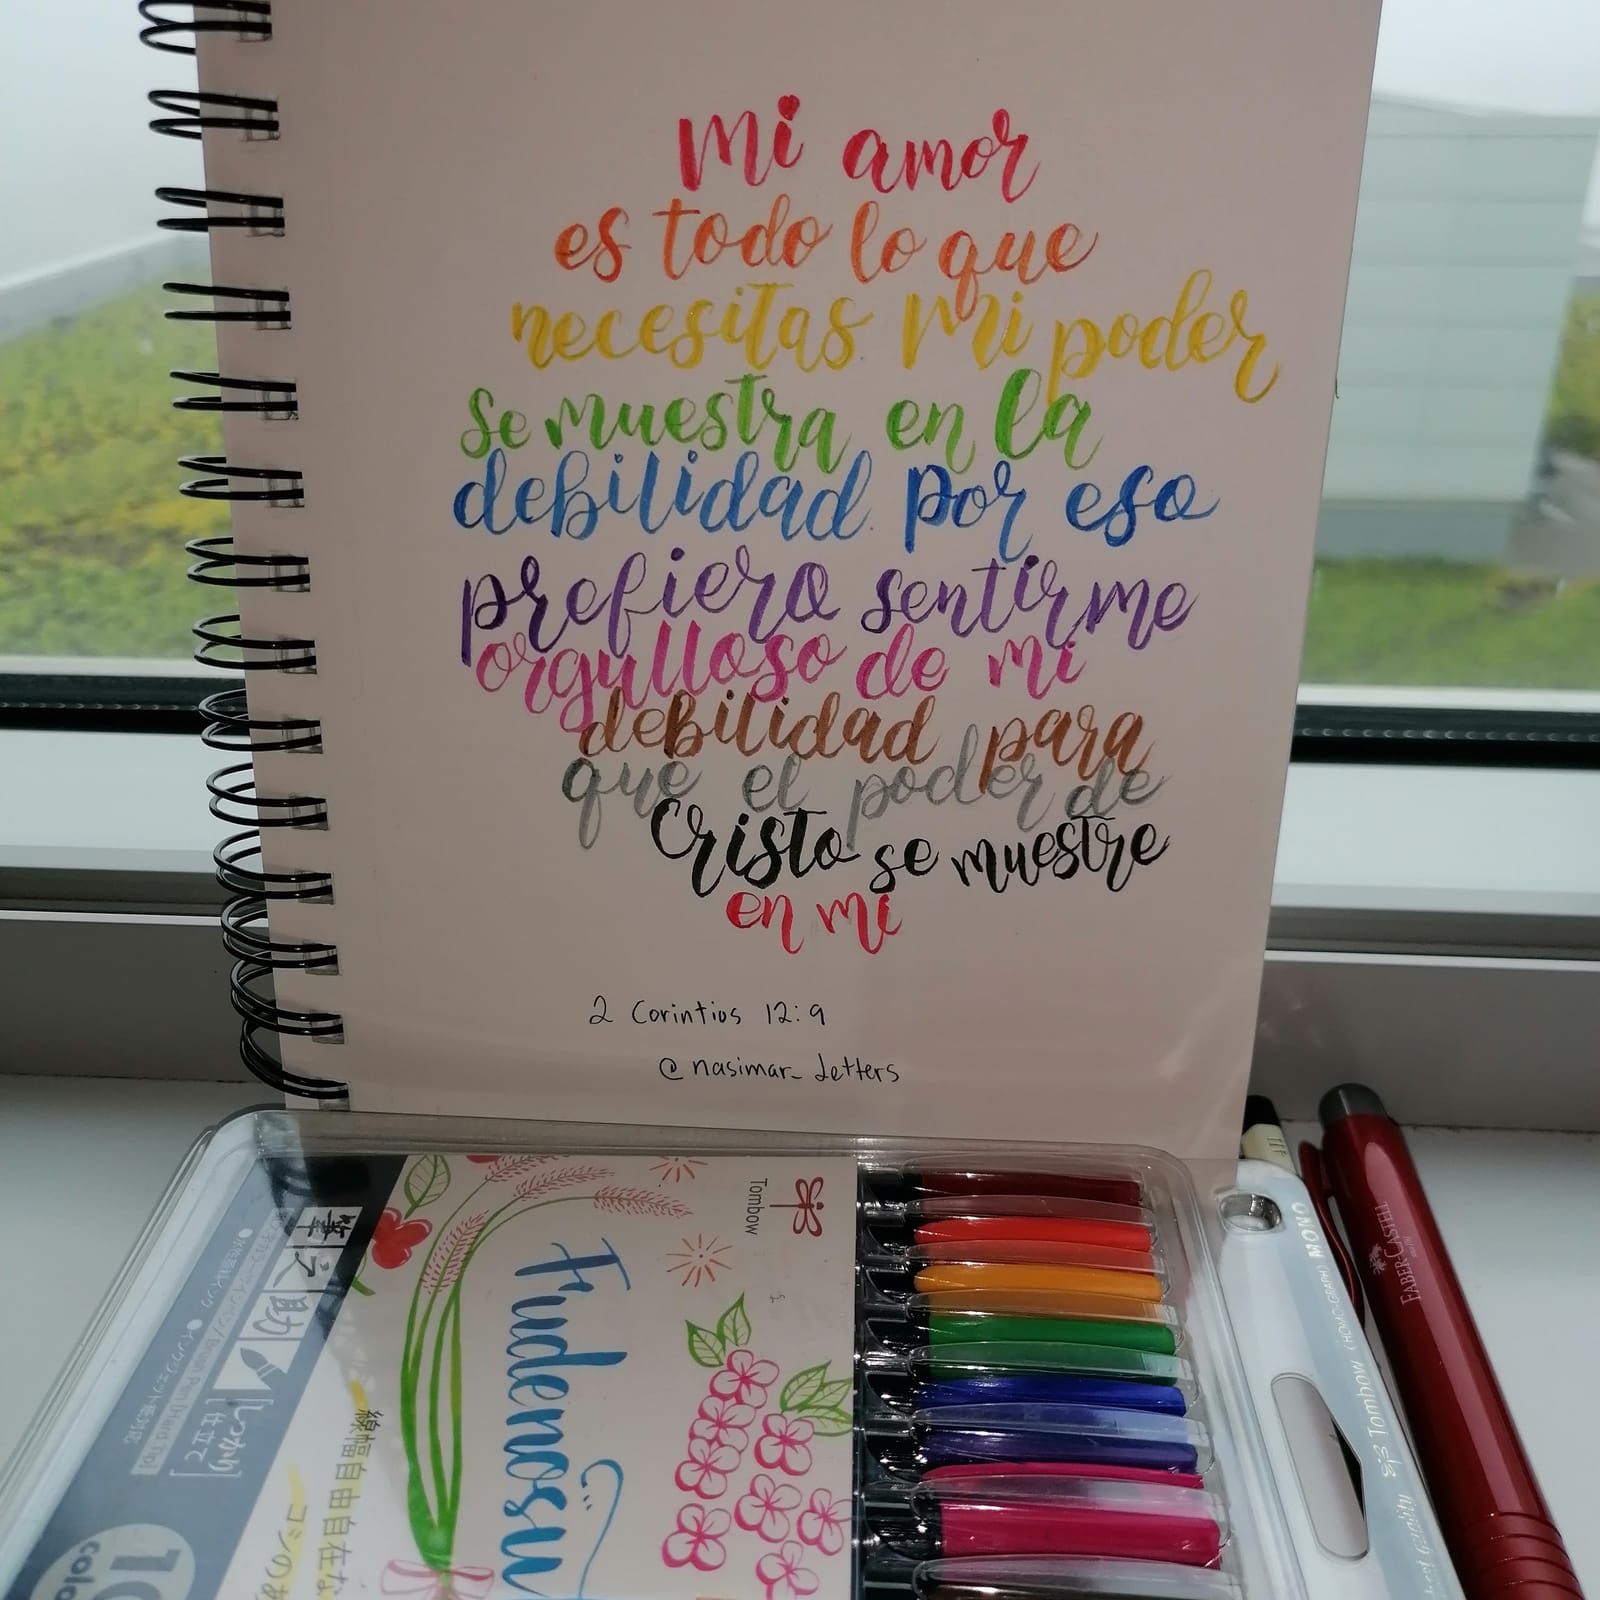 mi amor
es todo lo que
necesitas mi poder
se muestra en la
debilidad. por eso
prefiero sentirme
orgulloso de mi
debilidad para
que el poder de
Cristo se muestre
en mi
2 Corintios 12:9
@nasimar_letters
Tombow
Fudenosu
筆之助
[しっかり
仕立て]
線幅自由自在な
コシのあ
10
colo
MONO
(HOMO-GRAPH)
Tombow
FABER-CASTELL